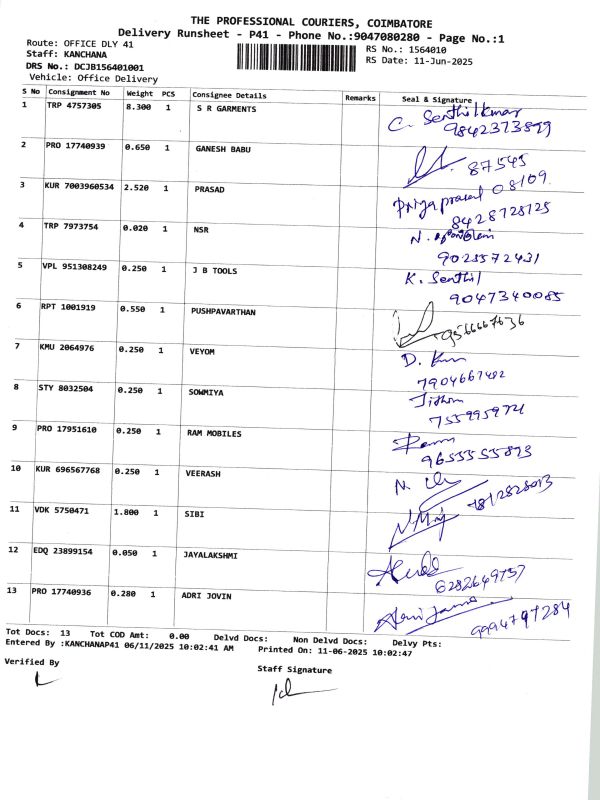 THE PROFESSIONAL COURIERS, COIMBATORE
Delivery Runsheet - P41 - Phone No.:9047080280 - Page No.:1
Route: OFFICE DLY 41
RS No.: 1564010
Staff: KANCHANA
RS Date: 11-Jun-2025
DRS No.: DCJB156401001
Vehicle: Office Delivery
S No Consignment No Weight PCS Consignee Details Remarks Seal & Signature
1 TRP 4757305 8.300 1 S R GARMENTS C. Senthilkumar
9842373899
2 PRO 17740939 0.650 1 GANESH BABU 87545
08109
3 KUR 7003960534 2.520 1 PRASAD Priyaprasad
8428728125
4 TRP 7973754 0.020 1 NSR N.
9023572431
5 VPL 951308249 0.250 1 J B TOOLS K. Senthil
9047340085
6 RPT 1001919 0.550 1 PUSHPAVARTHAN 9566667636
7 KMU 2064976 0.250 1 VEYOM D.
7904667482
8 STY 8032504 0.250 1 SOWMIYA
9 PRO 17951610 0.250 1 RAM MOBILES
9655555893
10 KUR 696567768 0.250 1 VEERASH N.
11 VDK 5750471 1.800 1 SIBI
12 EDQ 23899154 0.050 1 JAYALAKSHMI
6282649757
13 PRO 17740936 0.280 1 ADRI JOVIN
9994797284
Tot Docs: 13 Tot COD Amt: 0.00 Delvd Docs: Non Delvd Docs: Delvy Pts:
Entered By :KANCHANAP41 06/11/2025 10:02:41 AM Printed On: 11-06-2025 10:02:47
Verified By Staff Signature